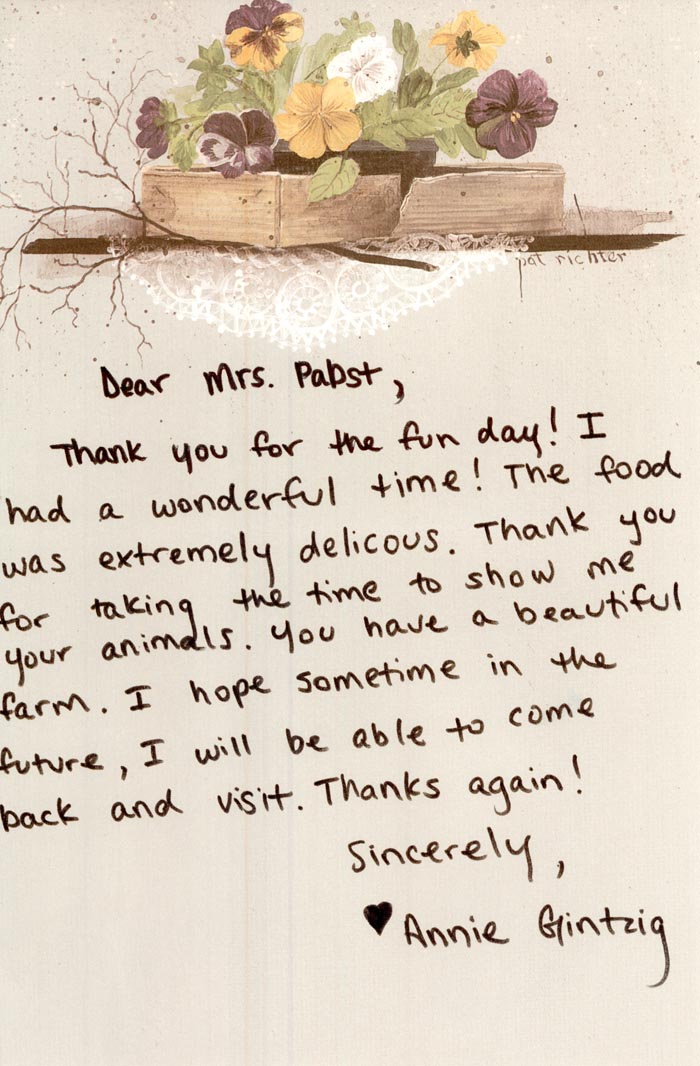 pat richter
Dear Mrs. Pabst,
Thank you for the fun day! I
had a wonderful time! The food
was extremely delicous. Thank you
for taking the time to show me
your animals. You have a beautiful
farm. I hope sometime in the
future, I will be able to come
back and visit. Thanks again!
Sincerely,
♥ Annie Gintzig